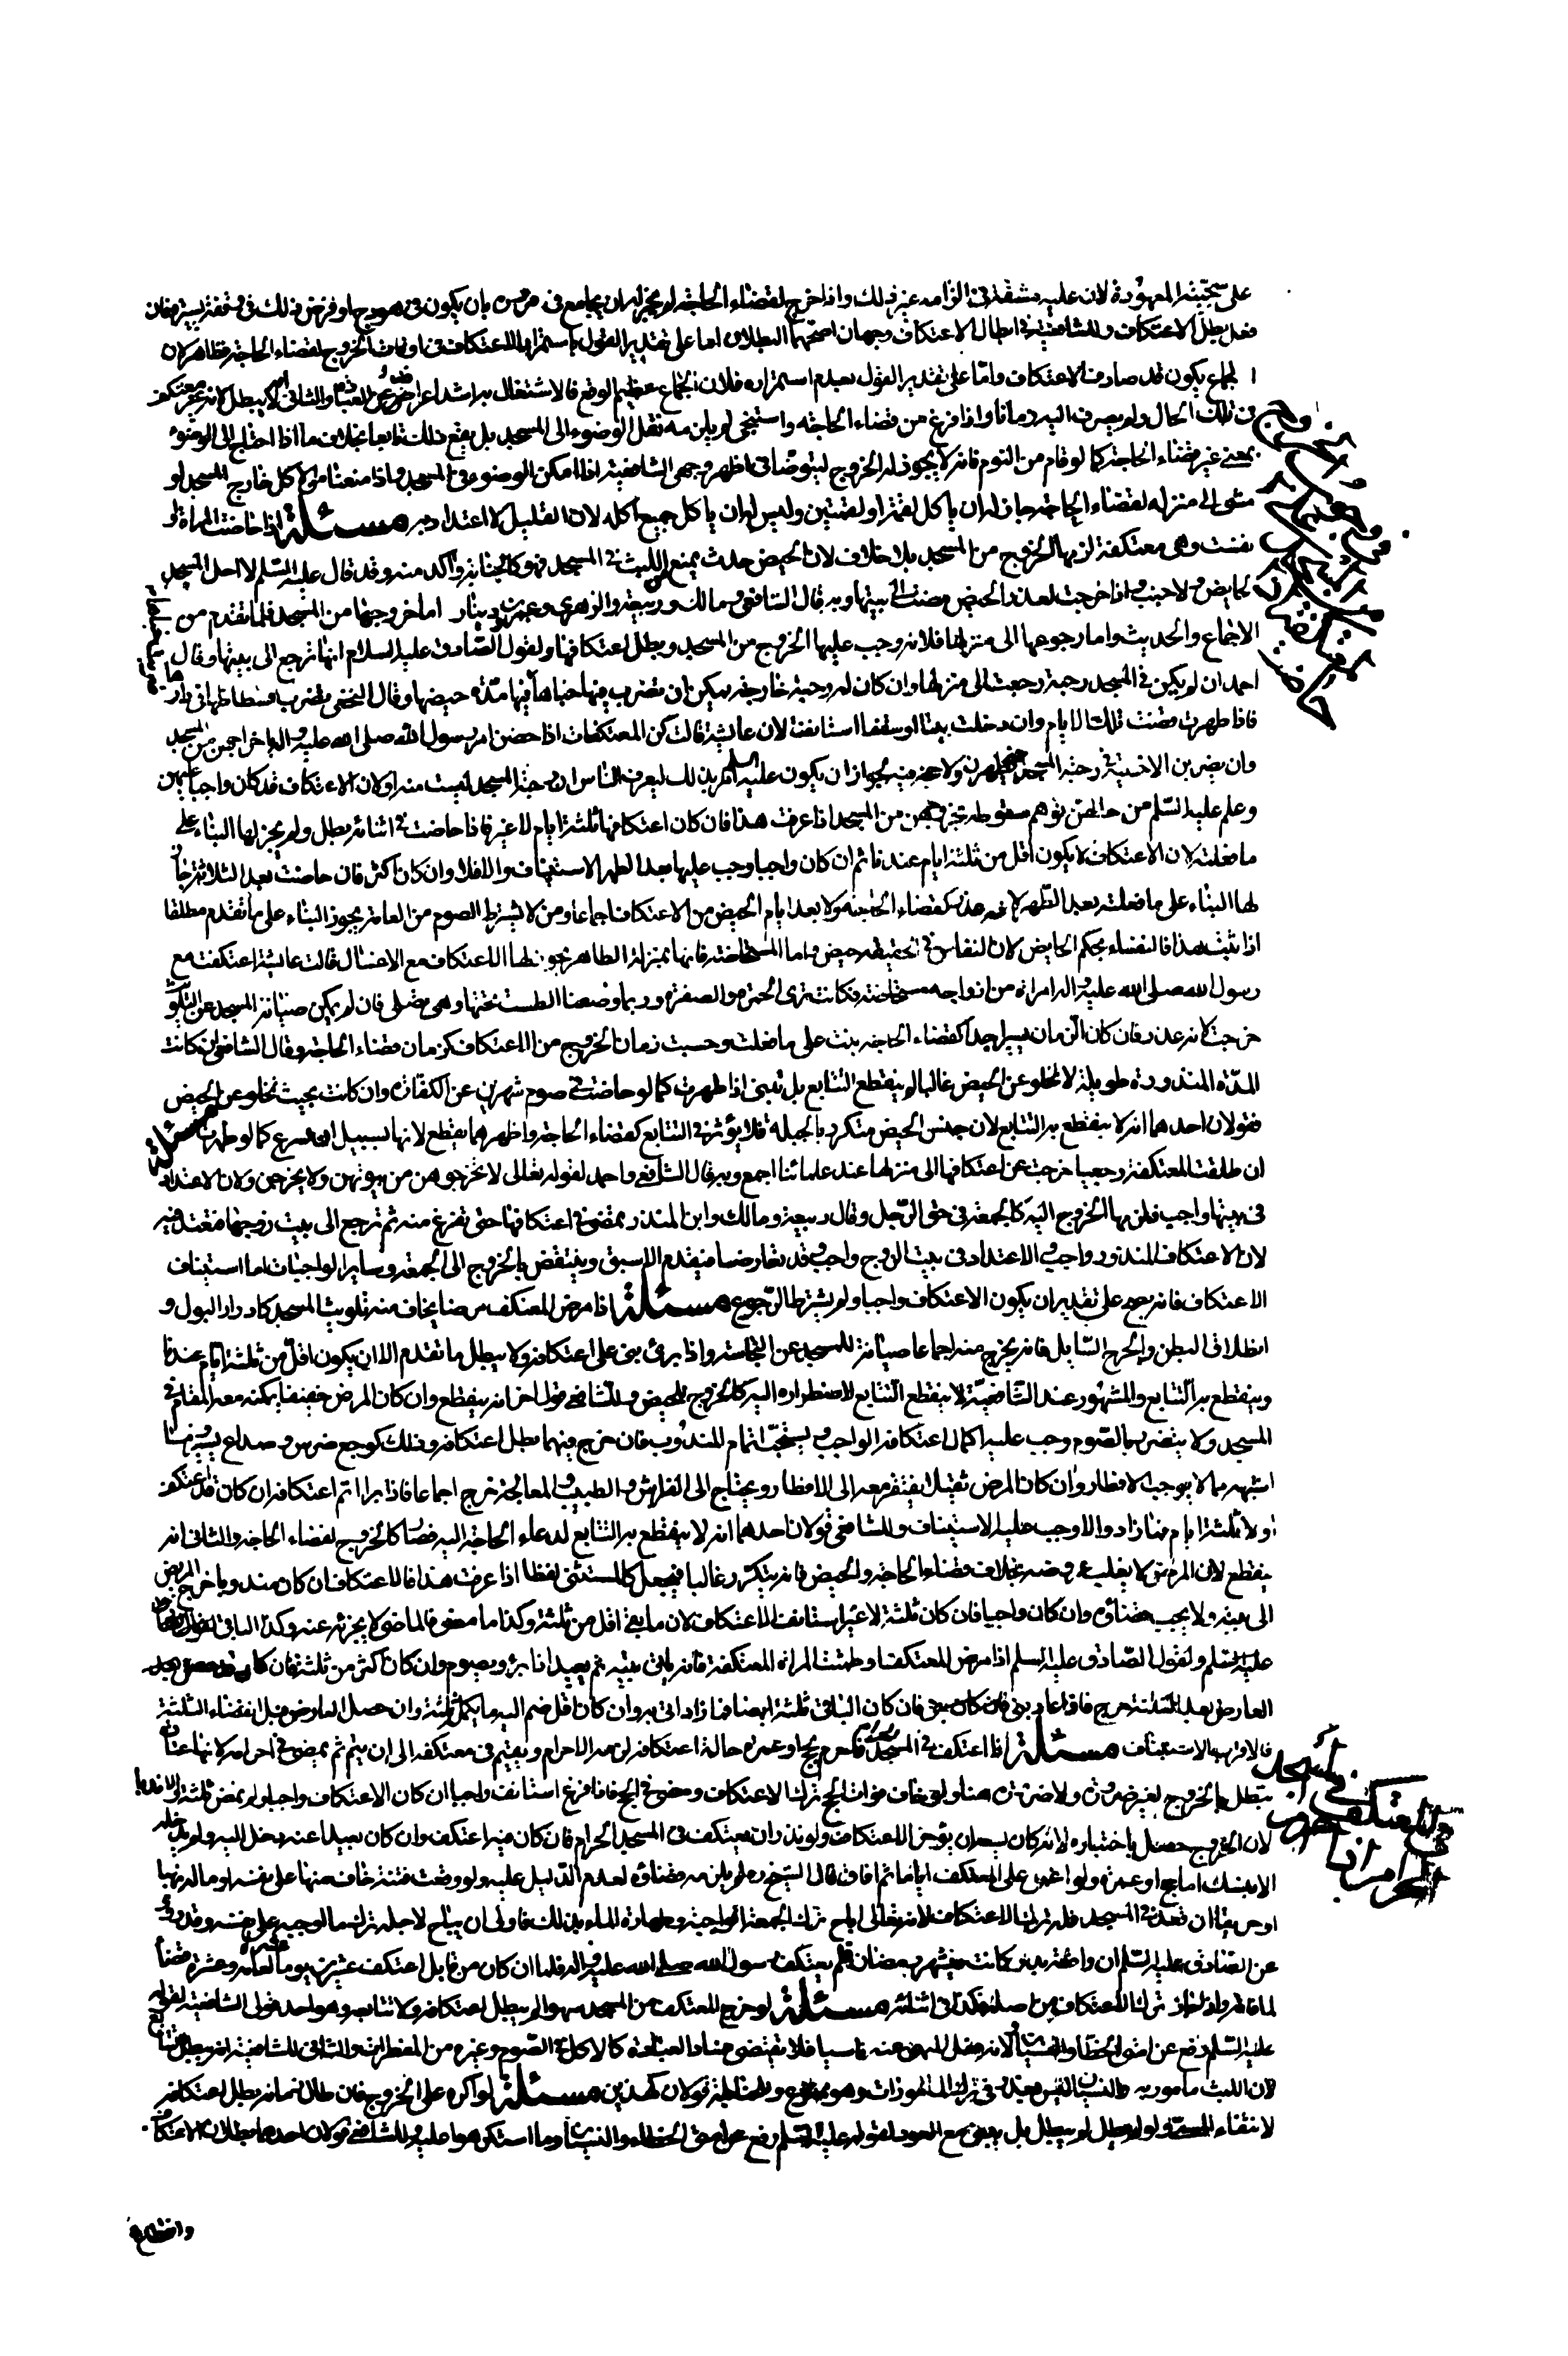 على سجيته المعهودة لان عليه مشقة في الزامه غير ذلك واذا خرج لقضاء الحاجة لم يجز له ان يجامع في مروره بان يكون في هودج او فرض ذلك في وقفة يسيرة فان
فعل بطل الاعتكاف وللشافعية في ابطال الاعتكاف وجهان اصحهما البطلان اما على تقدير القول باستمرار الاعتكاف في اوقات الخروج لقضاء الحاجة فظاهر لان
الجماع يكون قد صادف الاعتكاف واما على تقدير القول بعدم استمراره فلان الجماع عظيم الوقع فالاشتغال به اشد اعراضا عن العبادة والثاني انه لا يبطل لانه غير معتكف
في تلك الحال ولم يصرف اليه زمانا واذا فرغ من قضاء الحاجة واستنجى لم يلزمه نقل الوضوء الى المسجد بل يقع ذلك تابعا بخلاف ما اذا احتاج الى الوضوء
بمعنى غير قضاء الحاجة كما لو قام من النوم فانه لا يجوز له الخروج ليتوضا في اظهر وجهي الشافعية اذا امكن الوضوء في المسجد واذا منعنا من الاكل خارج المسجد لو
مشى الى منزله لقضاء الحاجة جاز له ان ياكل لقمة او لقمتين وليس له ان ياكل جميع اكله لان القليل لا اعتداد به مسئلة اذا حاضت المراة او
نفست وهي معتكفة لزمها الخروج من المسجد بلا خلاف لان الحيض حدث يمنع اللبث في المسجد فهو كالجنابة واكد منه وقد قال عليه السلم لا احل المسجد
لحايض ولا جنب واذا خرجت لعذر الحيض مضت الى بيتها وبه قال الشافعي ومالك وربيعة والزهري وعمرو بن دينار اما خروجها من المسجد فلما تقدم من
الاجماع والحديث واما رجوعها الى منزلها فلانه وجب عليها الخروج من المسجد وبطل اعتكافها ولقول الصادق عليه السلام انها ترجع الى بيتها وقال
احمد ان لم يكن في المسجد رحبة رجعت الى منزلها وان كان له رحبة خارجة يمكن ان تضرب فيها خباها فيها مدة حيضها وقال النخعي تضرب فسطاطها في دارها
فاذا طهرت قضت تلك الايام وان دخلت بيتا او سقفا استانفت لان عايشة قالت كن المعتكفات اذا حضن امر رسول الله صلى الله عليه واله باخراجهن من المسجد
وان يضربن الاخبية في رحبة المسجد حتى يطهرن ولا حجة فيه لجواز ان يكون عليه السلم امر بذلك ليعرف الناس ان رحبة المسجد ليست منه او لان الاعتكاف قد كان واجبا عليهن
وعلم عليه السلم من حالهن توهم سقوطه بخروجهن من المسجد اذا عرفت هذا فان كان اعتكافها ثلثة ايام لا غير فاذا حاضت في اثنائه بطل ولم يجز لها البناء على
ما فعلته لان الاعتكاف لا يكون اقل من ثلثة ايام عندنا ثم ان كان واجبا وجب عليها بعد الطهر الاستيناف والا فلا وان كان اكثر فان حاضت بعد الثلاثة جاز
لها البناء على ما فعلته بعد الطهر لانه عذر كقضاء الحاجة ولا بعد ايام الحيض من الاعتكاف اجماعا ومن لا يشترط الصوم من العامة يجوز البناء على ما تقدم مطلقا
اذا ثبت هذا فالنفساء بحكم الحايض لان النفاس في الحقيقة حيض واما المستحاضة فانها بمنزلة الطاهر يجوز لها الاعتكاف مع الاغتسال قالت عايشة اعتكفت مع
رسول الله صلى الله عليه واله امراة من ازواجه مستحاضة فكانت ترى الحمرة والصفرة وربما وضعنا الطست تحتها وهي تصلي فان لم يمكن صيانة المسجد عن التلوث
خرجت لانه عذر فان كان الزمان يسيرا جدا كقضاء الحاجة بنت على ما فعلت وحسبت زمان الخروج من الاعتكاف كزمان قضاء الحاجة وقال الشافعي ان كانت
المدة المنذورة طويلة لا تخلو عن الحيض غالبا لم ينقطع التتابع بل تبني اذا طهرت كما لو حاضت في صوم شهرين عن الكفارة وان كانت بحيث تخلو عن الحيض
فقولان احدهما انه لا ينقطع به التتابع لان جنس الحيض متكرر بالجبلة فلا يؤثر في التتابع كقضاء الحاجة واظهرهما ينقطع لانها بسبيل ان تسرع كما لو طهرت مسئلة
ان طلقت المعتكفة رجعيا خرجت عن اعتكافها الى منزلها عند علمائنا اجمع وبه قال الشافعي واحمد لقوله تعالى لا تخرجوهن من بيوتهن ولا يخرجن ولان الاعتداد
في بيتها واجب فلزمها الخروج اليه كالجمعة في حق الرجل وقال ربيعة ومالك وابن المنذر تمضي في اعتكافها حتى تفرغ منه ثم ترجع الى بيت زوجها فتعتد فيه
لان الاعتكاف المنذور واجب والاعتداد في بيت الزوج واجب وقد تعارضا فيقدم الاسبق وينتقض بالخروج الى الجمعة وساير الواجبات اما استيناف
الاعتكاف فانه يصح على تقدير ان يكون الاعتكاف واجبا ولم يشترط الرجوع مسئلة اذا مرض المعتكف مرضا يخاف منه تلويث المسجد كادرار البول و
انطلاق البطن والجرح السايل فانه يخرج منه اجماعا صيانة للمسجد عن النجاسة واذا برئ بنى على اعتكافه ولا يبطل ما تقدم الا ان يكون اقل من ثلثة ايام عندنا
وينقطع به التتابع والمشهور عند الشافعية لا ينقطع التتابع لاضطراره اليه كالخروج للحيض وللشافعي قول اخر انه ينقطع وان كان المرض خفيفا يمكنه معه المقام في
المسجد ولا يتضرر بالصوم وجب عليه اكمال اعتكافه الواجب ويستحب اتمام المندوب فان خرج فيهما بطل اعتكافه وذلك كوجع ضرس وصداع يسير وما
اشبهه مما لا يوجب الافطار وان كان المرض ثقيلا يفتقر معه الى الافطار ويحتاج الى الفراش والطبيب والمعالجة خرج اجماعا فاذا برا اتم اعتكافه ان كان قد اعتكف
اولا ثلثة ايام فما زاد والا وجب عليه الاستيناف وللشافعي قولان احدهما انه لا ينقطع به التتابع لدعاء الحاجة اليه فصار كالخروج لقضاء الحاجة والثاني انه
ينقطع لان المرض لا يغلب عروضه بخلاف قضاء الحاجة والحيض فانه يتكرر غالبا فيجعل كالمستثنى لفظا اذا عرفت هذا فالاعتكاف ان كان مندوبا خرج المريض
الى بيته ولا يجب قضاؤه وان كان واجبا فان كان ثلثة لا غير استانف الاعتكاف لان ما بقي اقل من ثلثة وكذا ما مضى فالماضي لا يجزئ عنه وكذا الباقي لقول
عليه السلم ولقول الصادق عليه السلم اذا مرض المعتكف او طمثت المراة المعتكفة فانه ياتي بيته ثم يعيد اذا برئ ويصوم وان كان اكثر من ثلثة فان كان قد حصل
العارض بعد الثلثة خرج فاذا عاد بنى فان كان الباقي ثلثة ايضا فما زاد اتى به وان كان اقل ضم اليه ما يكمل ثلثة وان حصل العارض قبل انقضاء الثلثة
فالاقرب الاستيناف مسئلة اذا اعتكف في المسجد الحرام فاحرم بحج او عمرة حالة اعتكافه لزمه الاحرام ويقيم في معتكفه الى ان يتم ثم يمضي في احرامه لانها عبادة
تبطل بالخروج لغير ضرورة ولا ضرورة هنا ولو خاف فوات الحج ترك الاعتكاف ومضى في الحج فاذا فرغ استانف واجبا ان كان الاعتكاف واجبا ولم يمض ثلثة
لان الخروج حصل باختياره لانه كان يسعه ان يؤخر الاعتكاف ولو نذر ان يعتكف في المسجد الحرام فان كان فيه اعتكف وان كان بعيدا عنه دخل اليه ولم يدخله
الا بنسك اما حج او عمرة ولو اغمي على المعتكف اياما ثم افاق قال الشيخ ره لم يلزمه قضاؤه لعدم الدليل عليه ولو وقعت فتنة خاف منها على نفسه او ماله نهبا
او حريقا ان قعد في المسجد فله ترك الاعتكاف لانه تعالى اباح ترك الجمعة الواجبة وطهارة الماء بذلك فاولى ان يباح لاجله ترك ما اوجبه على نفسه وقد روي
عن الصادق عليه السلم ان واقعة بدر كانت في شهر رمضان فلم يعتكف رسول الله صلى الله عليه واله فلما ان كان من قابل اعتكف عشرين يوما عشرة لعامه وعشرة قضاء
لما فاته واذا جاز ترك الاعتكاف من اصله فكذا في اثنائه مسئلة لو خرج المعتكف من المسجد سهوا لم يبطل اعتكافه ولا تتابعه وهو احد قولي الشافعية لقوله
عليه السلم رفع عن امتي الخطاء والنسيان ولانه فعل المنهي عنه ناسيا فلا يقتضي فساد العبادة كالاكل في الصوم وغيره من المفطرات والثاني للشافعية انه يبطل التتابع
لان اللبث مامور به والنسيان ليس بعذر في ترك المامورات وهو ممنوع وللحنابلة قولان كهذين مسئلة لو اكره على الخروج فان طال زمانه بطل اعتكافه
لانتفاء المسمى ولو لم يطل لم يبطل بل يبني مع العود لقوله عليه السلم رفع عن امتي الخطاء والنسيان وما استكرهوا عليه وللشافعي قولان احدهما بطلان الاعتكاف
وانقطاع